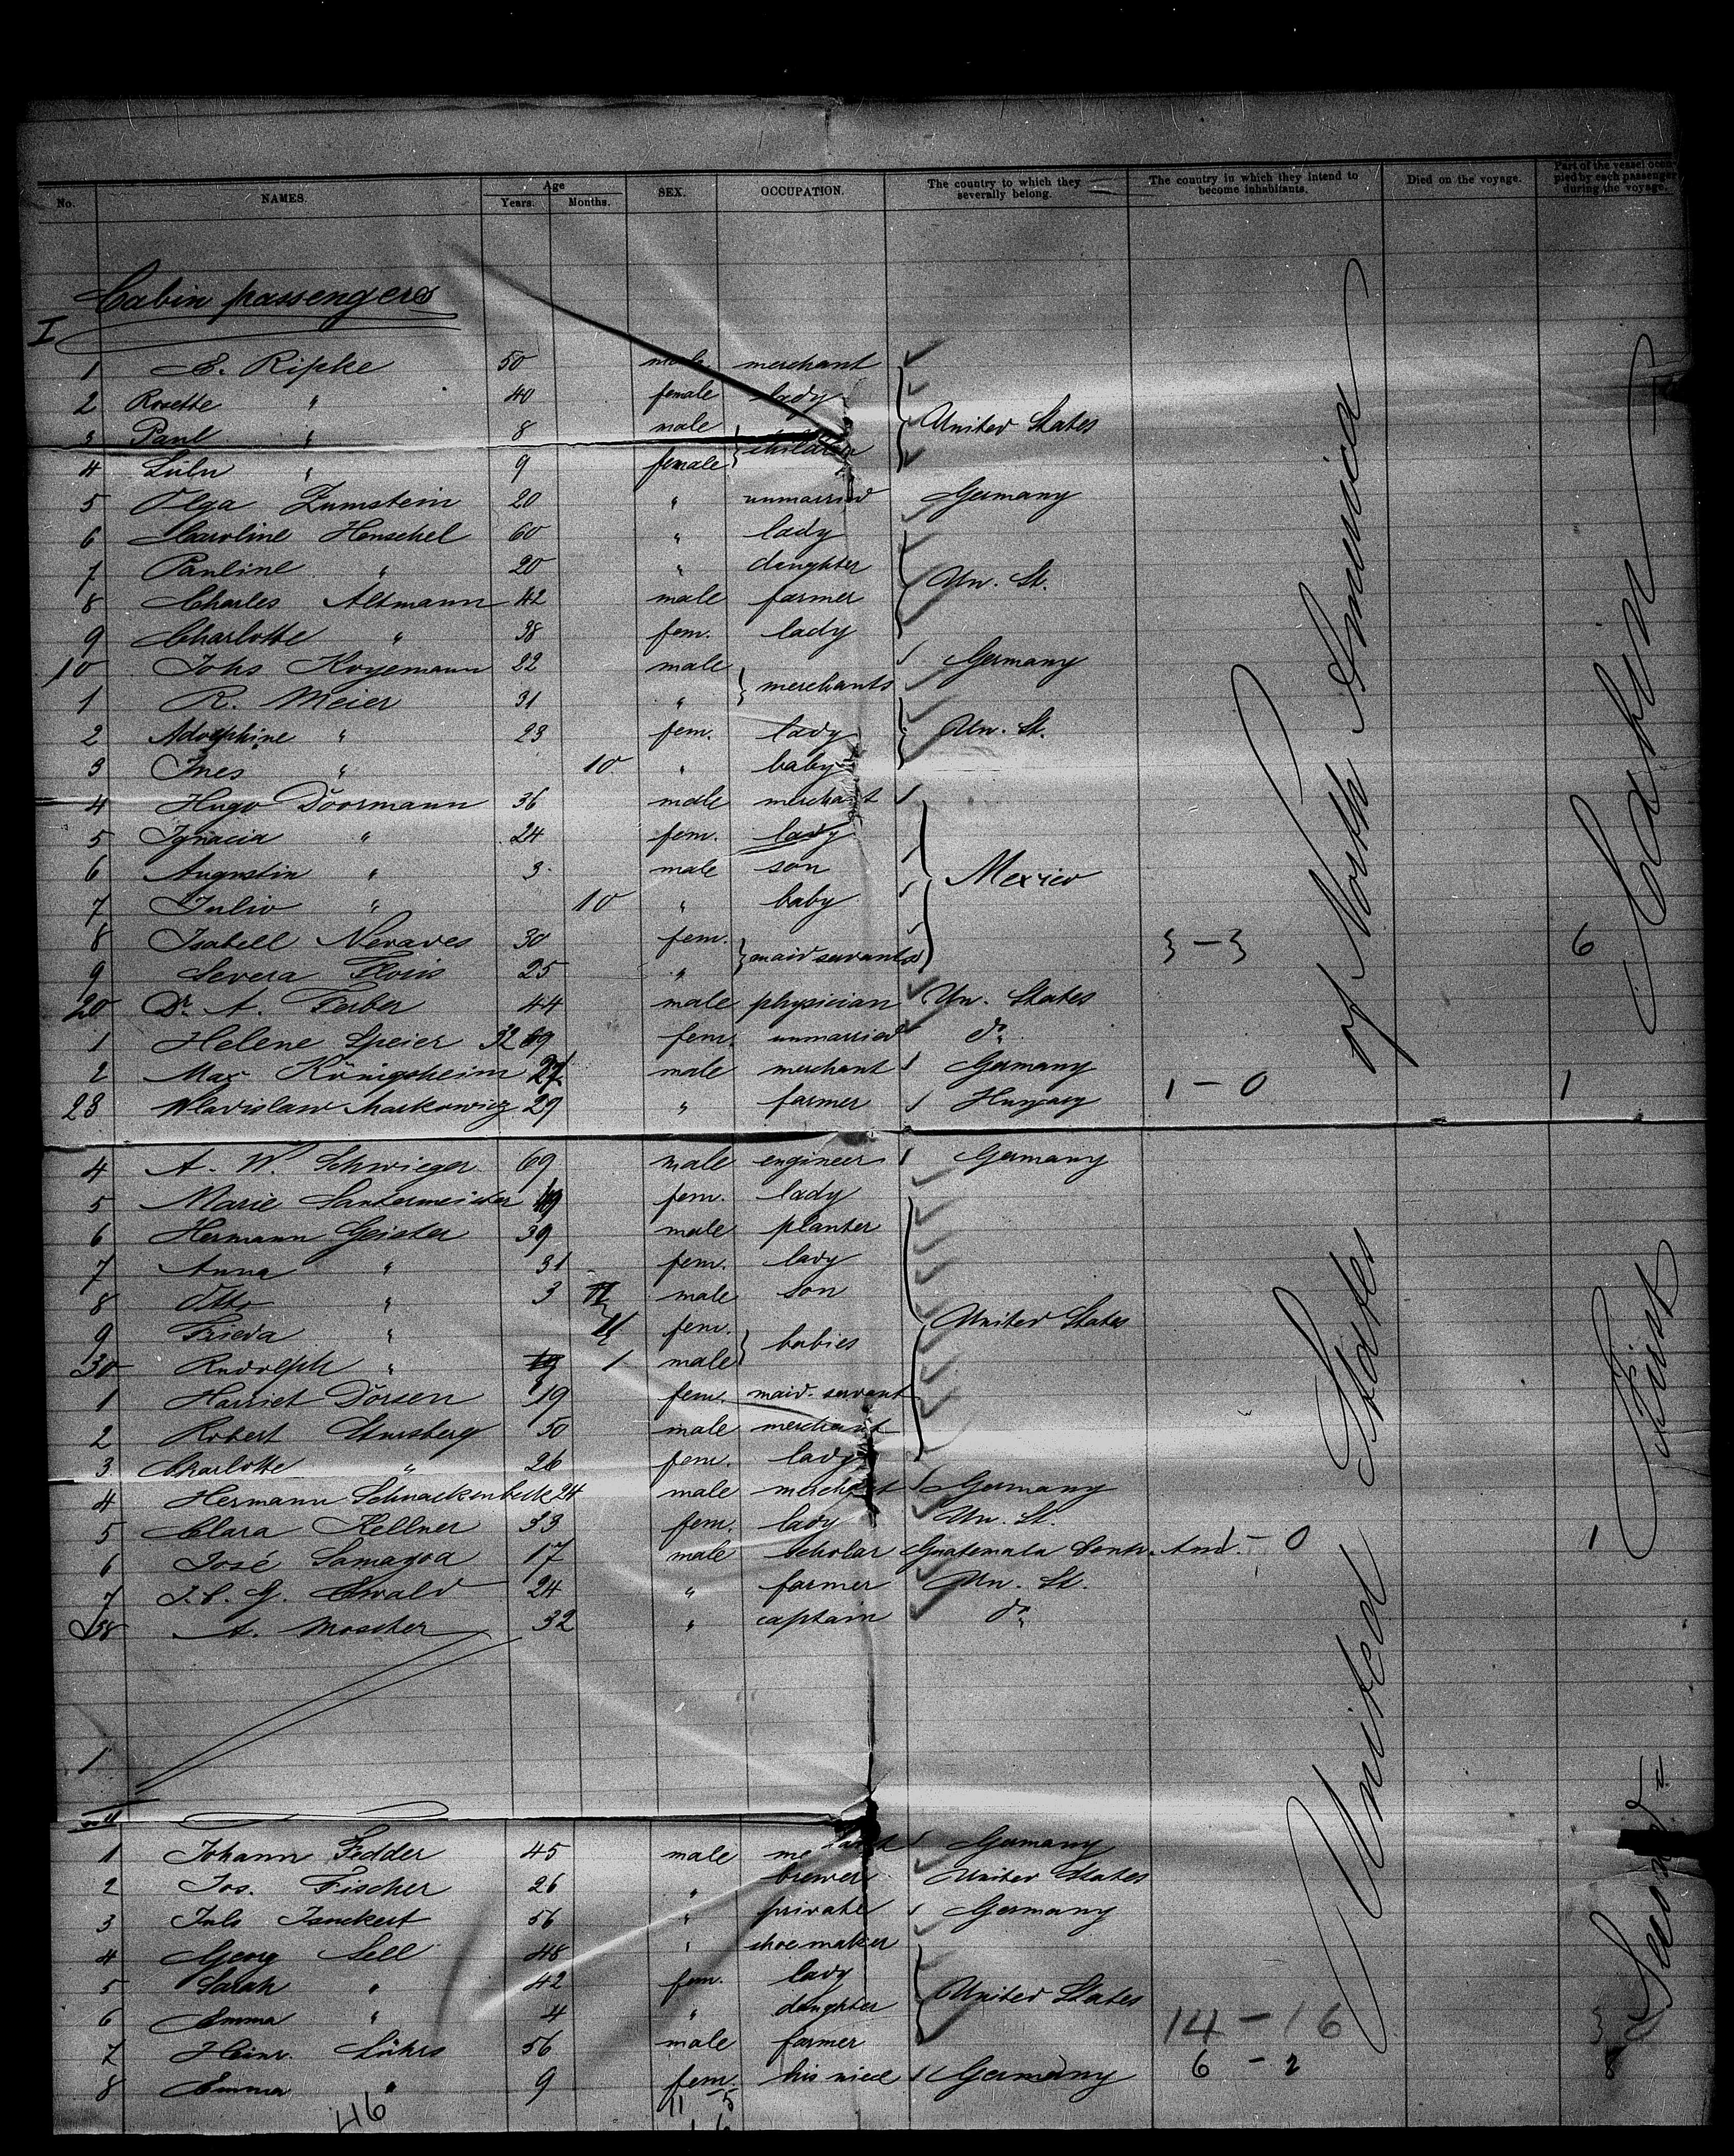 No. NAMES. Age Years. Months. SEX. OCCUPATION. The country to which they severally belong. The country in which they intend to become inhabitants. Died on the voyage. Part of the vessel occupied by each passenger during the voyage.
Cabin passengers
I
1 Ripke 50 male merchant
2 Rosette " 40 female lady
3 Paul " 8 male children United States
4 Lulu " 9 female
5 Olga Zumstein 20 " unmarried Germany
6 Caroline Henschel 60 " lady
7 Pauline " 20 " daughter Un. St.
8 Charles Altmann 42 male farmer
9 Charlotte " 38 fem. lady
10 Johs Koyemann 22 male merchants Germany
1 R. Meier 31 "
2 Adolphine " 23 fem. lady Un. St.
3 Ines " 10 " baby
4 Hugo Doormann 36 male merchant
5 Ignacia " 24 fem. lady
6 Augustin " 3 male son Mexico
7 Julio " 10 " baby
8 Isabell Nevares 30 fem. maid servants 3 - 3 6
9 Severa 25 "
20 Dr. A. Ferber 44 male physician Un. States
1 Helene Speier 32 fem. unmarried do
2 Max Königsheim 27 male merchant Germany 1 - 0 1
23 Wladislaw Markowicz 29 " farmer Hungary
4 A. W. Schwieger 69 male engineer Germany
5 Marie fem. lady
6 Hermann Geister 39 male planter
7 Anna " 31 fem. lady
8 Otto " 3 male son
9 Frieda " 11 fem. babies United States
30 Rudolph " 1 male
1 Harriet Dorsen 19 fem. maid-servant
2 Robert Stursberg 50 male merchant
3 Charlotte " 26 fem. lady
4 Hermann Schnackenbeck 24 male merchant Germany
5 Clara Kellner 33 fem. lady Un. St.
6 José Samayoa 17 male scholar Guatemala Centr. Am. - 0 1
7 24 " farmer Un. St.
38 A. Moscher 32 " captain do
1
II
1 Johann Fedder 45 male Germany
2 Jos. Fischer 26 " brewer United States
3 56 " private Germany
4 Georg Sell 48 " shoemaker
5 Sarah " 42 fem. lady United States
6 Emma " 4 " daughter 14 - 16
7 Heinr. Lührs 56 male farmer 6 - 2
8 Emma " 9 fem. his niece Germany 8
46 11 5
United States of North America
First Cabin